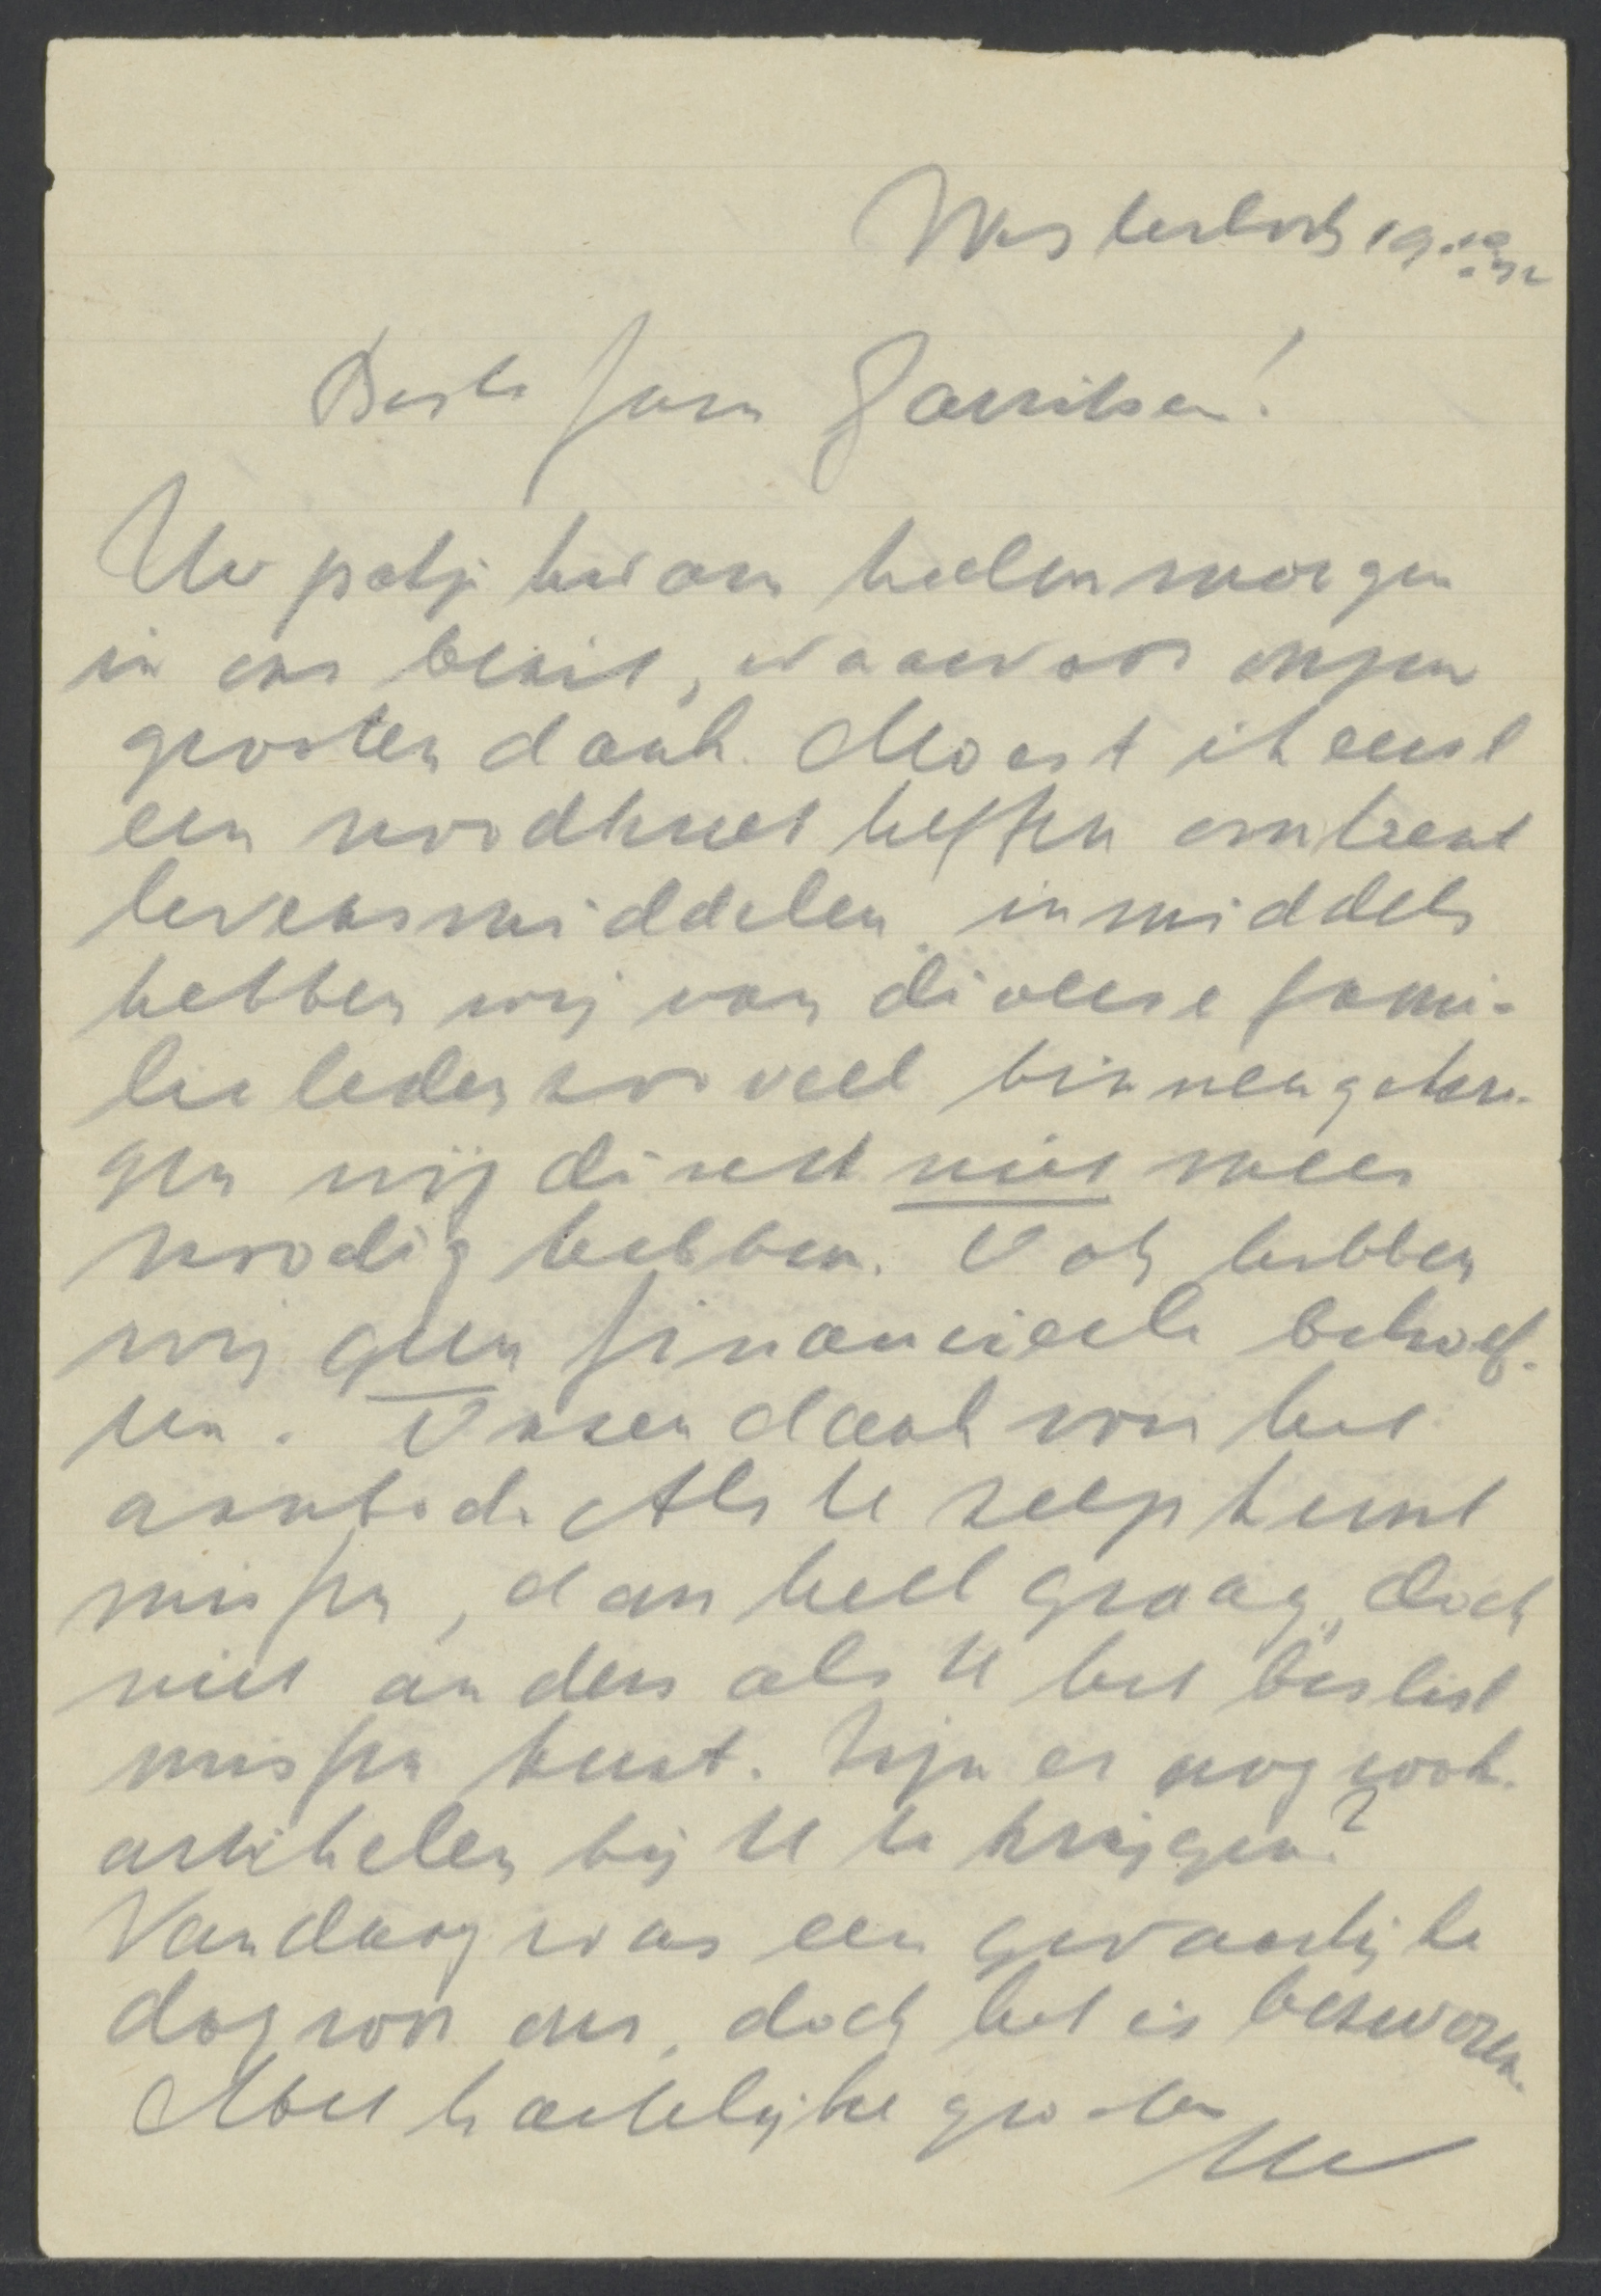 Westerbork 19.10.42
Beste fam Gerritsen!
Uw pakje kwam heden morgen
in ons bezit, waarvoor onzen
grooten dank. Moest ik eerst
een noodkreet heffen omtrent
levensmiddelen inmiddels
hebben wij van diverse fami-
lieleden zooveel binnengekre-
gen wij direkt niet meer
noodig hebben. Ook hebben
wij geen financieele behoef-
ten. Onzen dank voor het
aanbod. Als U zeep kunt
missen, dan heel graag, doch
niet anders als U het beslist
missen kunt. Zijn er nog rook-
artikelen bij U te krijgen?
Vandaag was een gevaarlijke
dag voor ons, doch het is bezworen.
Met hartelijke groeten
Uw